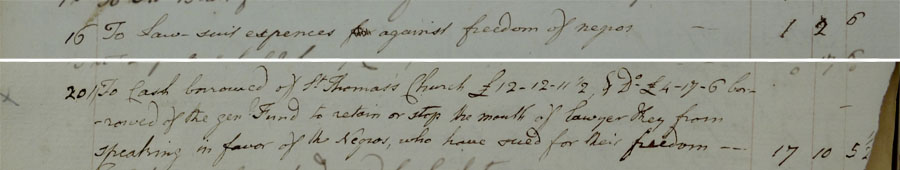 16 To Law-suit expences against freedom of negos — 1 2 6
20 To Cash borrowed of St Thomas's Church £12-12-11½, & Do £4-17-6 bor-
-rowed of the gen Fund to retain or stop the mouth of Lawyer Key from
speaking in favor of the Negros, who have sued for their freedom — 17 10 5½